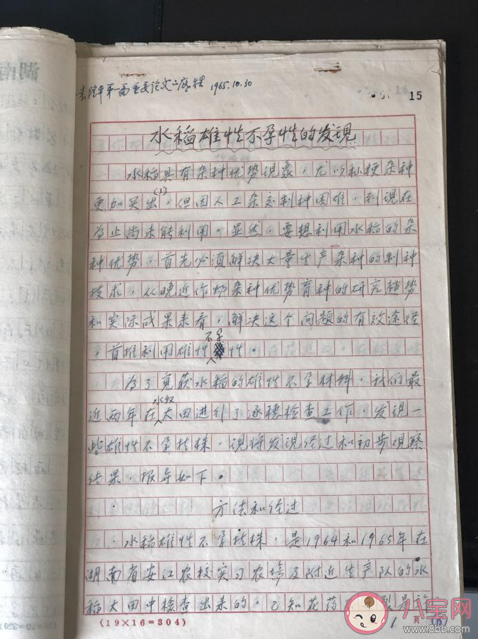 湖南
袁隆平第一篇重要论文之底稿 1965.10.30
15
水稻雄性不孕性的发现
水稻具有杂种优势现象，尤以籼粳杂种
更加突出(1)，但因人工杂交制种困难，到现在
为止尚未能利用。显然，要想利用水稻的杂
种优势，首先必须解决大量生产杂种的制种
技术，从晚近作物杂种优势育种的研究趋势
和实际成果来看，解决这个问题的有效途径
，首推利用雄性不孕性。
为了获得水稻的雄性不孕材料，我们最
近两年在水稻大田进行了逐穗检查工作，发现一
些雄性不孕植株，现将发现经过和初步观察
结果，报导如下。
方法和经过
水稻雄性不孕植株，是1964和1965年在
湖南省安江农校实习农场及附近生产队的水
稻大田中检查出来的。已知花药
(19×16=304)
八宝网